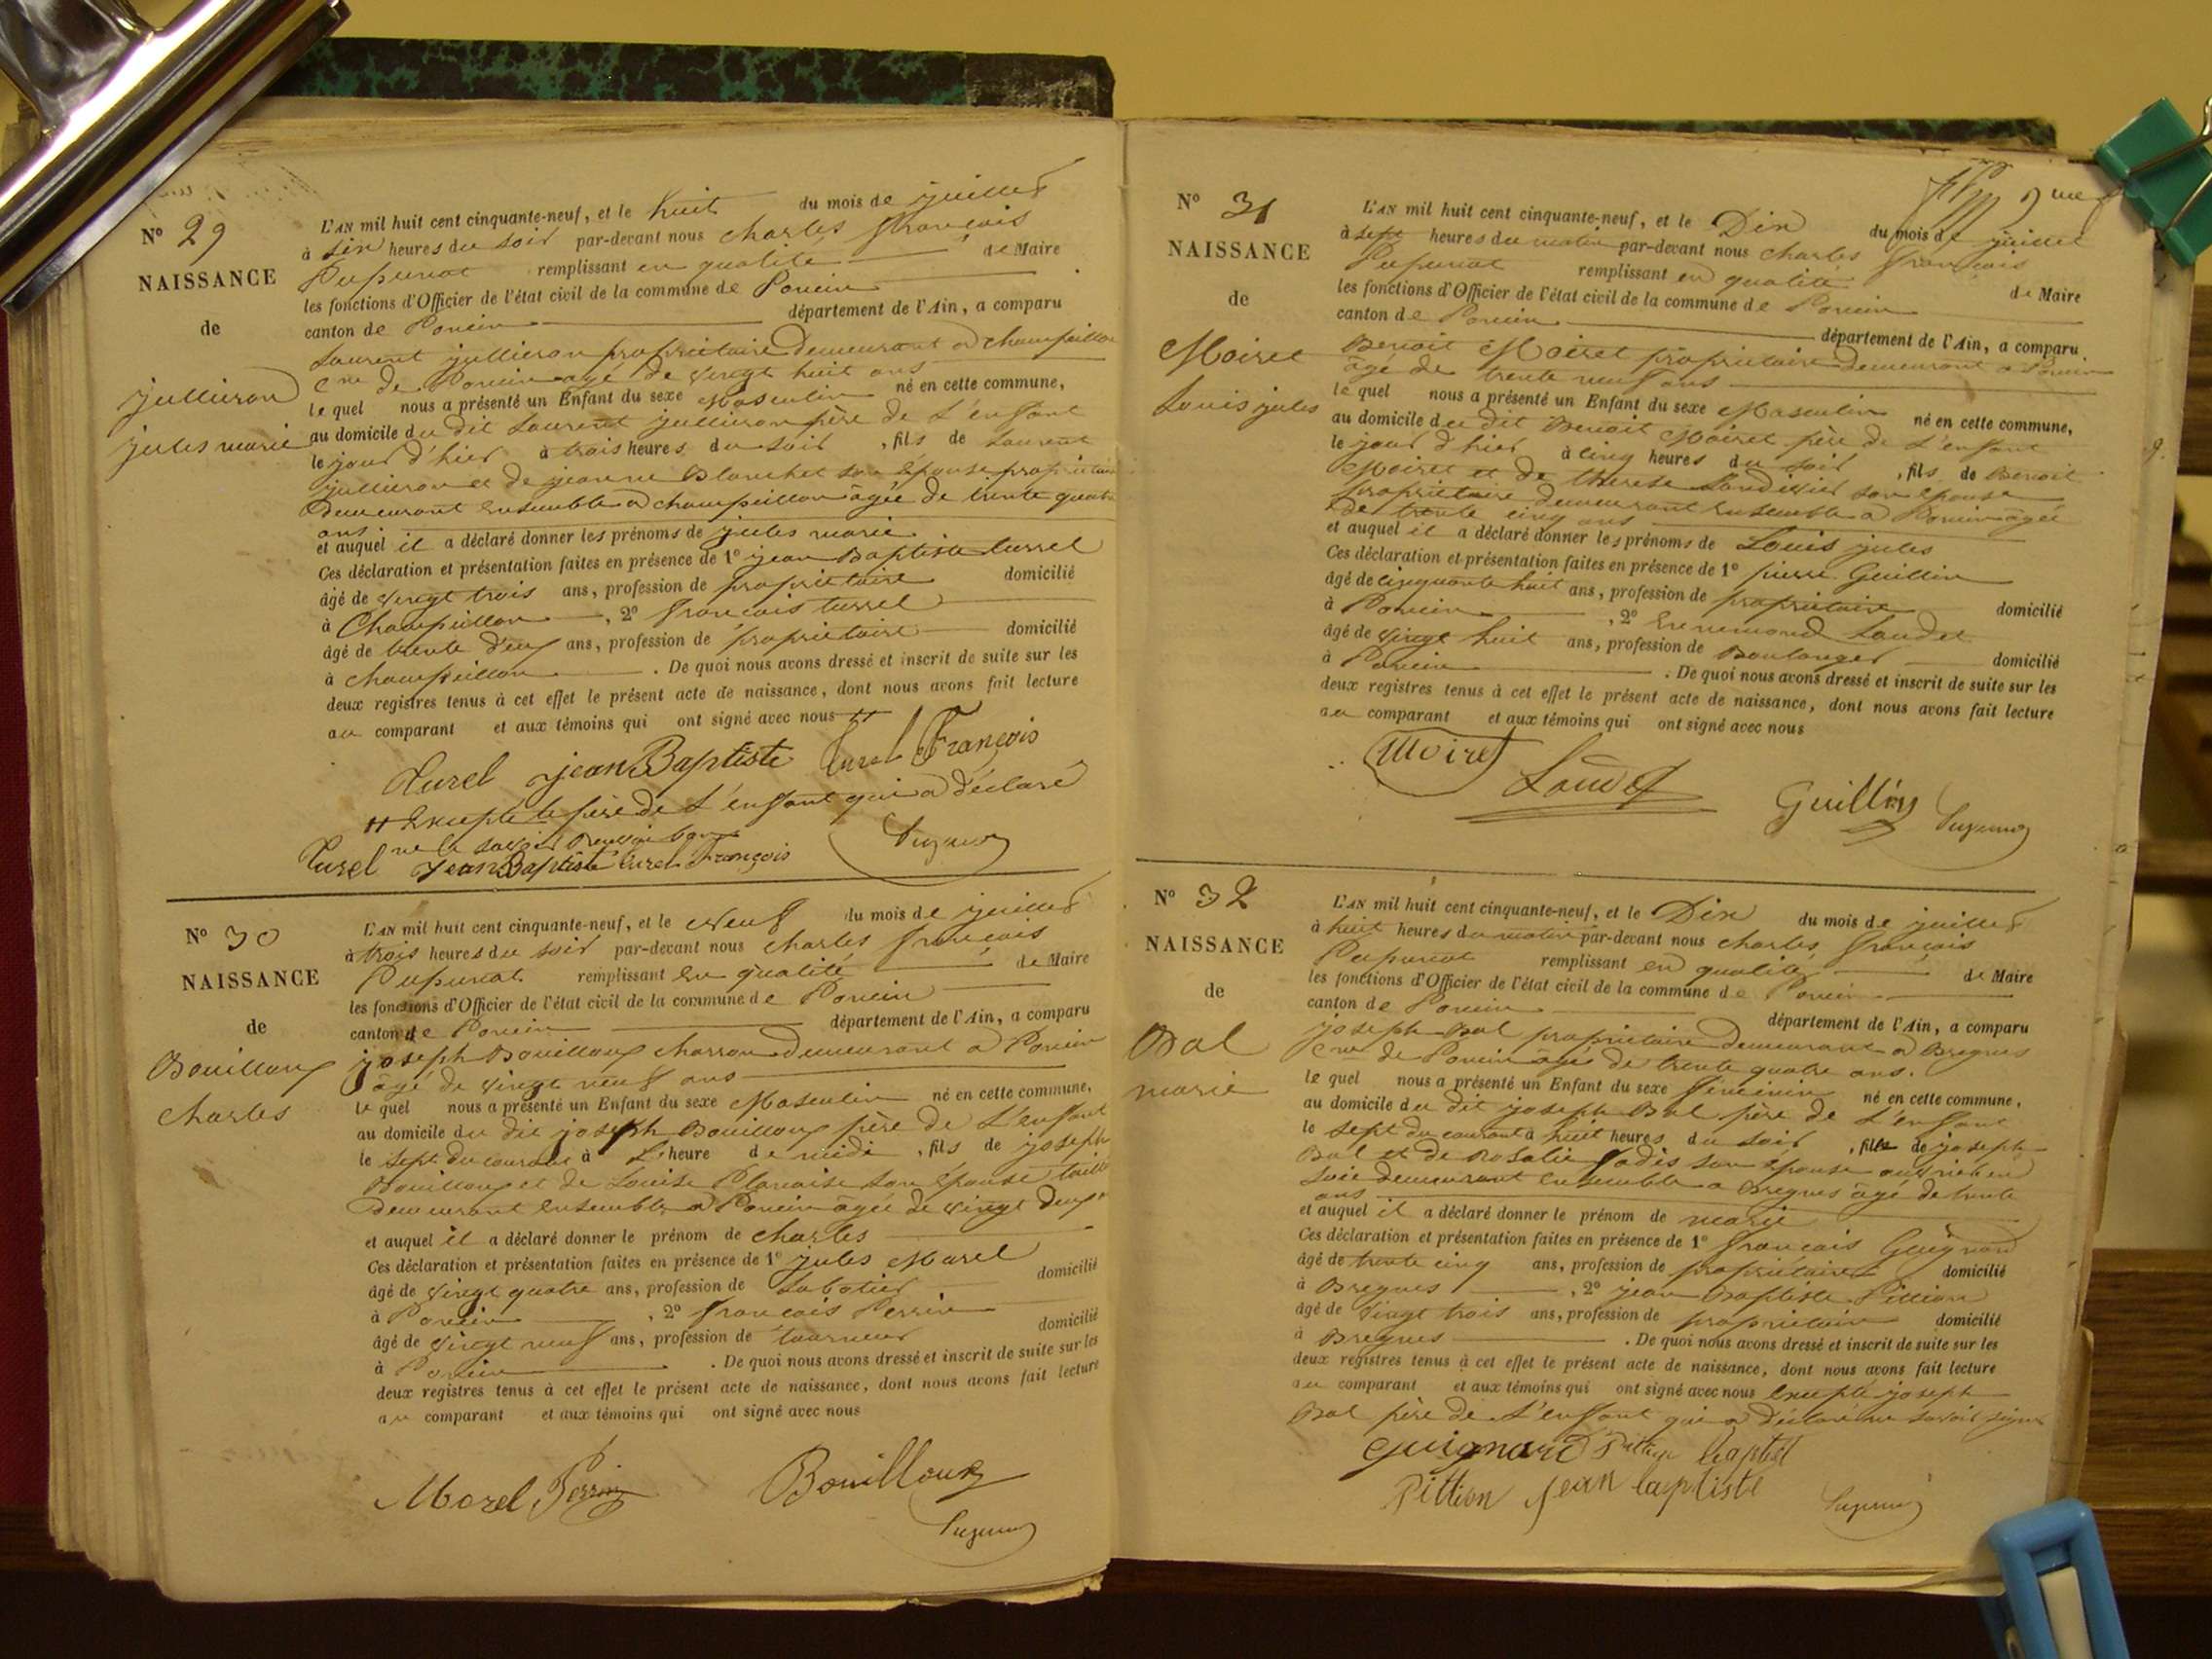 N° 29
NAISSANCE
de
jullieron
jules marie
L'AN mil huit cent cinquante-neuf, et le huit du mois de juillet
à six heures du soir par-devant nous charles françois
Pupunat remplissant en qualité de Maire
les fonctions d'Officier de l'état civil de la commune de Poncin
canton de Poncin département de l'Ain, a comparu
Laurent jullieron propriétaire demeurant a champeillon
Cne de Poncin agé de vingt huit ans
le quel nous a présenté un Enfant du sexe Masculin né en cette commune,
au domicile du dit Laurent jullieron père de L'enfant
le jour d'hier à trois heures du soir, fils de Laurent
jullieron et de jeanne Blanchet son épouse propriétaire
Demeurant ensemble a champeillon âgée de trente quatre
ans
et auquel il a déclaré donner les prénoms de jules marie
Ces déclaration et présentation faites en présence de 1° jean Baptiste turrel
âgé de vingt trois ans, profession de propriétaire domicilié
à Champeillon, 2° françois turrel
âgé de trente deux ans, profession de propriétaire domicilié
à champeillon. De quoi nous avons dressé et inscrit de suite sur les
deux registres tenus à cet effet le présent acte de naissance, dont nous avons fait lecture
au comparant et aux témoins qui ont signé avec nous #
Turel jean Baptiste turel François
# Excepté le père de L'enfant qui a déclaré
ne le savoir
Turel Jean Baptiste turel François Pupunat
N° 30
NAISSANCE
de
Bouilloux
charles
L'AN mil huit cent cinquante-neuf, et le neuf du mois de juillet
à trois heures du soir par-devant nous charles françois
Pupunat remplissant en qualité de Maire
les fonctions d'Officier de l'état civil de la commune de Poncin
canton de Poncin département de l'Ain, a comparu
joseph Bouilloux charron demeurant a Poncin
âgé de vingt neuf ans
le quel nous a présenté un Enfant du sexe Masculin né en cette commune,
au domicile du dit joseph Bouilloux père de L'enfant
le sept du courant à L'heure de midi, fils de joseph
Bouilloux et de Louise Planaise son épouse
Demeurant ensemble a Poncin âgée de vingt deux
et auquel il a déclaré donner le prénom de charles
Ces déclaration et présentation faites en présence de 1° jules Morel
âgé de vingt quatre ans, profession de sabotier domicilié
à Poncin, 2° françois Perrin
âgé de vingt neuf ans, profession de tourneur domicilié
à Poncin. De quoi nous avons dressé et inscrit de suite sur les
deux registres tenus à cet effet le présent acte de naissance, dont nous avons fait lecture
au comparant et aux témoins qui ont signé avec nous
Morel Perrin Bouilloux
Pupunat
N° 31
NAISSANCE
de
Moiret
Louis jules
L'AN mil huit cent cinquante-neuf, et le Dix du mois de juillet
à sept heures du matin par-devant nous charles françois
Pupunat remplissant en qualité de Maire
les fonctions d'Officier de l'état civil de la commune de Poncin
canton de Poncin département de l'Ain, a comparu
Benoit Moiret propriétaire demeurant a Poncin
âgé de trente neuf ans
le quel nous a présenté un Enfant du sexe Masculin né en cette commune,
au domicile du dit Benoit Moiret père de L'enfant
le jour d'hier à cinq heures du soir, fils de Benoit
Moiret et de therese son épouse
propriétaire demeurant ensemble a Poncin âgée
de trente cinq ans
et auquel il a déclaré donner les prénoms de Louis jules
Ces déclaration et présentation faites en présence de 1° pierre Guillin
âgé de cinquante huit ans, profession de propriétaire domicilié
à Poncin, 2° Ennemond Laudet
âgé de vingt huit ans, profession de Boulanger domicilié
à Poncin. De quoi nous avons dressé et inscrit de suite sur les
deux registres tenus à cet effet le présent acte de naissance, dont nous avons fait lecture
au comparant et aux témoins qui ont signé avec nous
Moiret Laudet Guillin Pupunat
N° 32
NAISSANCE
de
Bal
marie
L'AN mil huit cent cinquante-neuf, et le Dix du mois de juillet
à huit heures du matin par-devant nous charles françois
Pupunat remplissant en qualité de Maire
les fonctions d'Officier de l'état civil de la commune de Poncin
canton de Poncin département de l'Ain, a comparu
joseph Bal propriétaire demeurant a Bregnes
Cne de Poncin agé de trente quatre ans.
le quel nous a présenté un Enfant du sexe féminin né en cette commune,
au domicile du dit joseph Bal père de L'enfant
le sept du courant à huit heures du soir, fille de joseph
Bal et de Rosalie son épouse ouvrière en
soie demeurant ensemble a Bregnes âgé de trente
ans
et auquel il a déclaré donner le prénom de marie
Ces déclaration et présentation faites en présence de 1° françois Guignard
âgé de trente cinq ans, profession de propriétaire domicilié
à Bregnes, 2° jean Baptiste Pittion
âgé de vingt trois ans, profession de propriétaire domicilié
à Bregnes. De quoi nous avons dressé et inscrit de suite sur les
deux registres tenus à cet effet le présent acte de naissance, dont nous avons fait lecture
au comparant et aux témoins qui ont signé avec nous Excepté joseph
Bal père de L'enfant qui a déclaré ne savoir signer
Guignard Pittion baptist
Pittion jean baptiste Pupunat